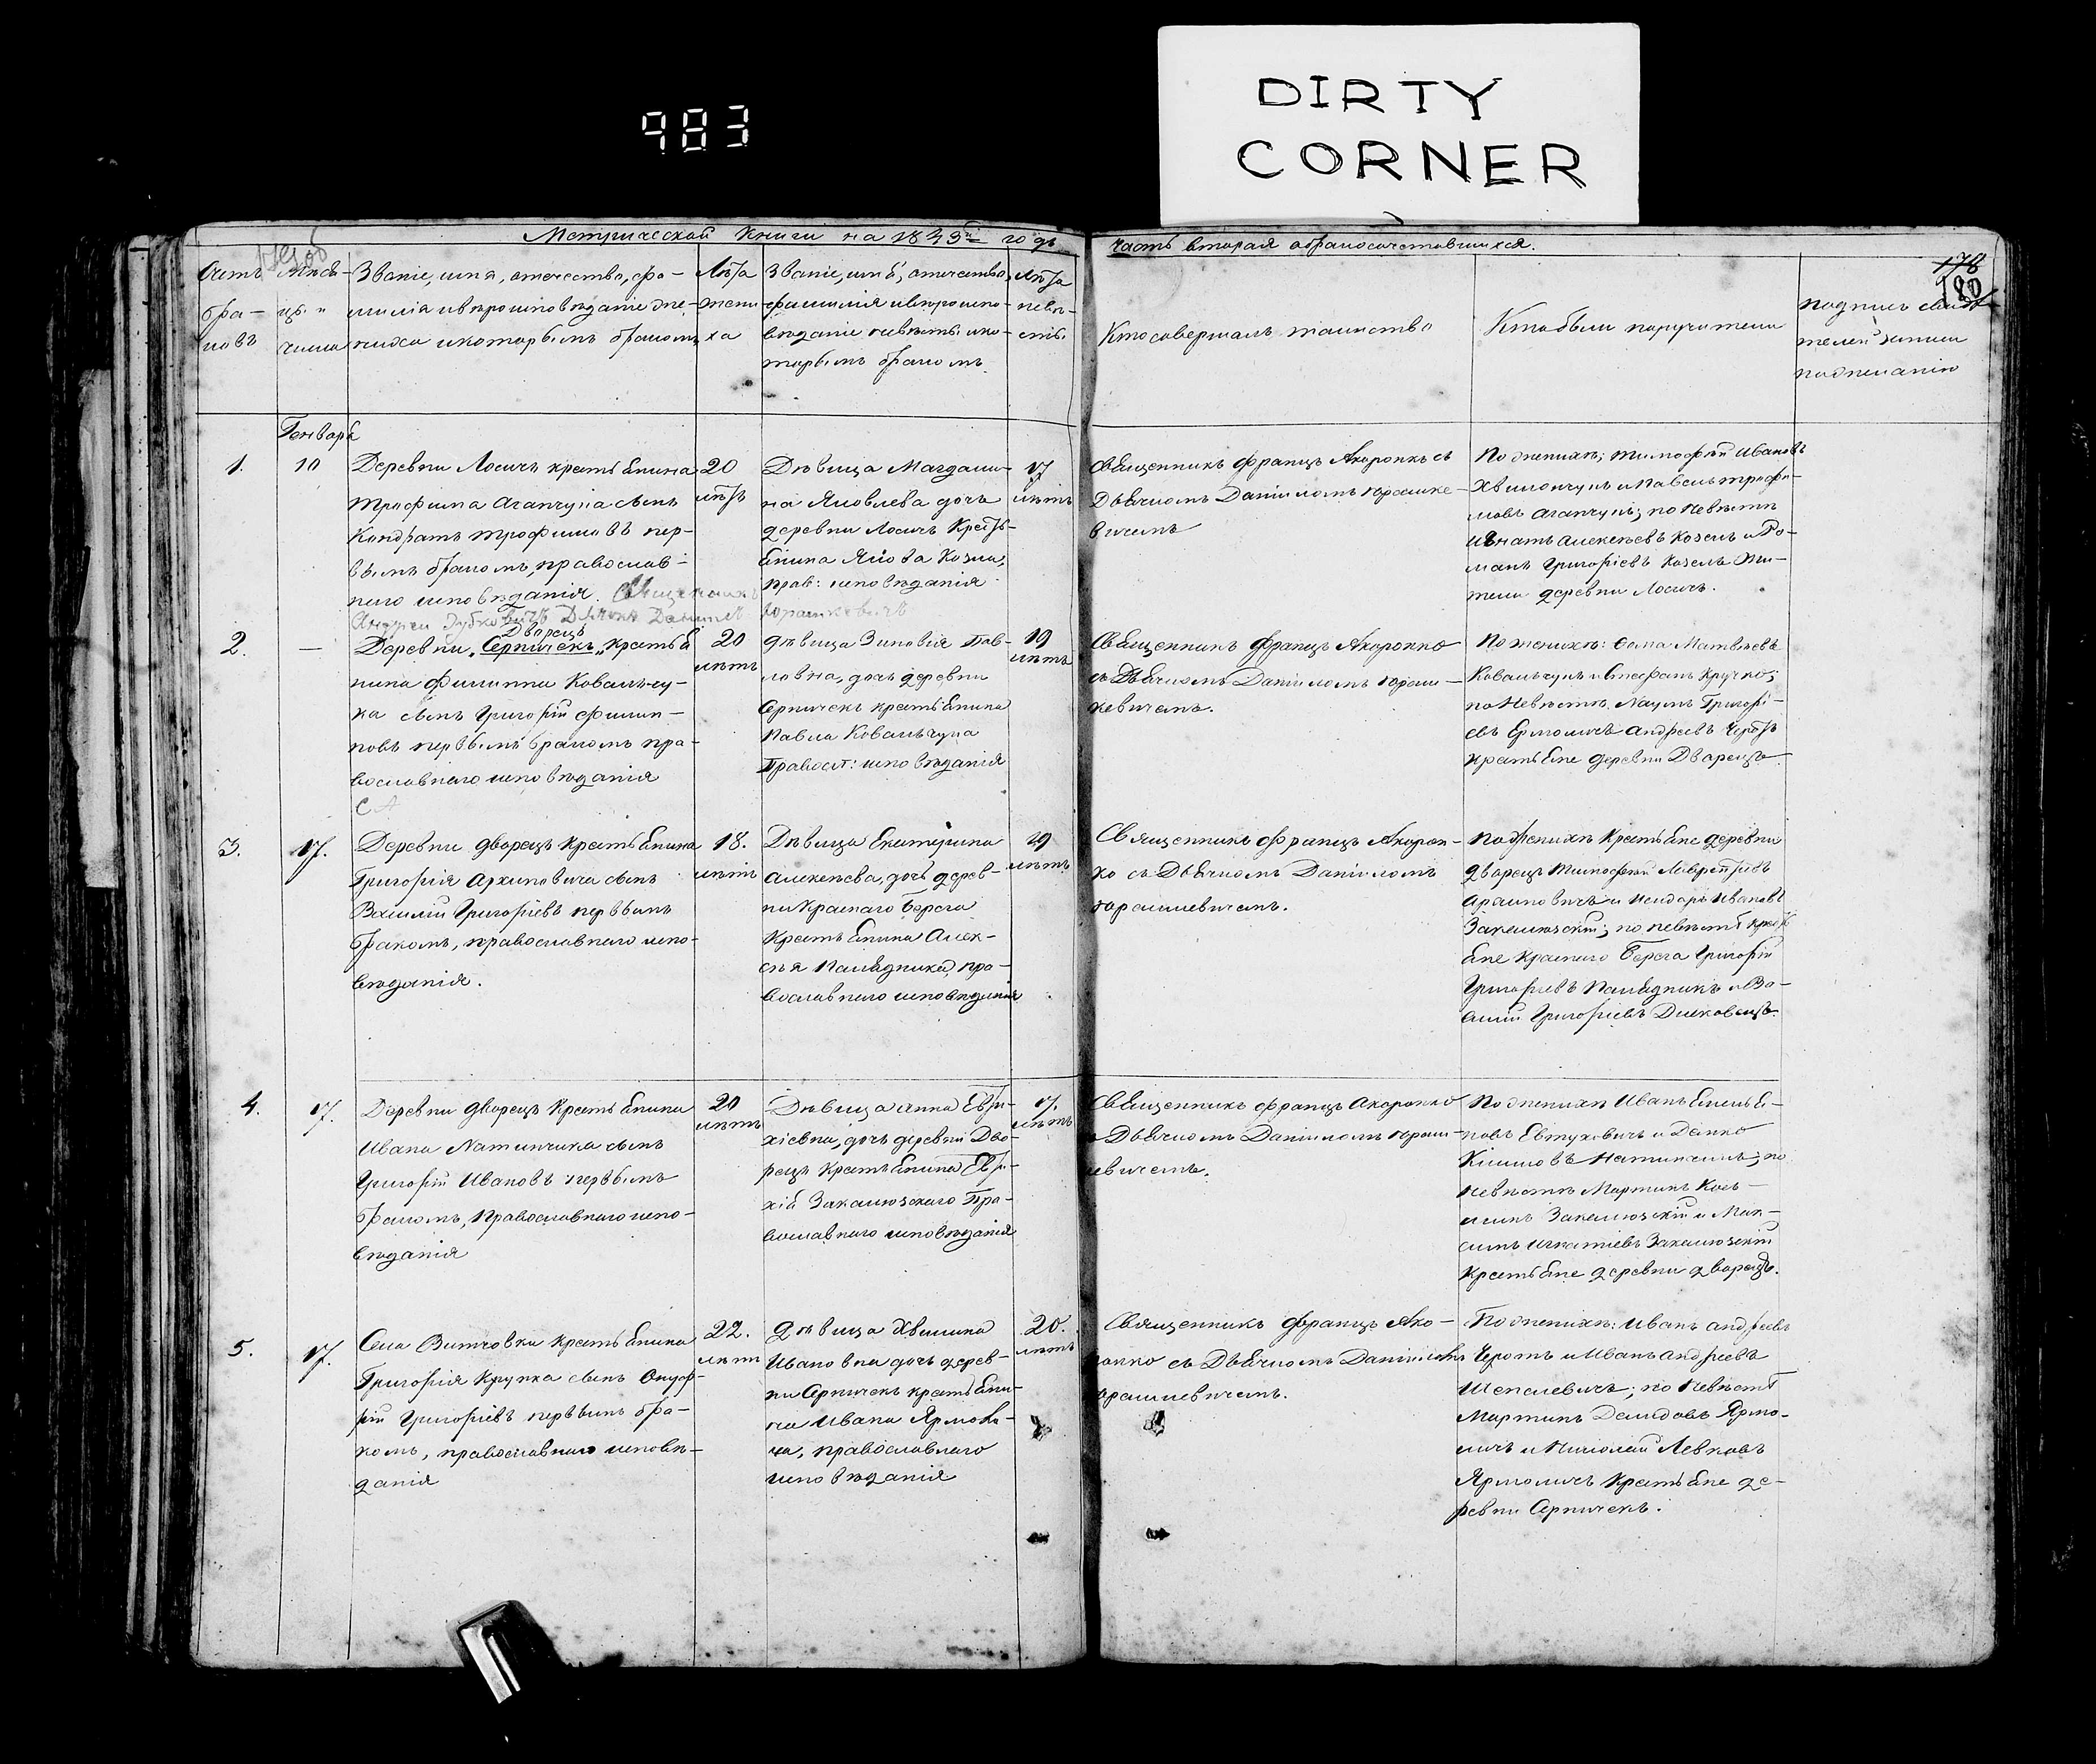 983
DIRTY
CORNER
Метрической книги на 1843й годъ
часть вторая о бракосочетавшихся.
178
180
Счетъ
бра-
ковъ
Мѣся-
цъ и
число
Званіе, имя, отечество, фа-
милія и вѣроисповѣданіе же-
ниха и которымъ бракомъ
Лѣта
жени
ха
Званіе, имя, отечество,
фамилія и вѣроиспо-
вѣданіе невѣсты и ко-
торымъ бракомъ.
Лѣта
невѣ-
сты
Кто совершалъ таинство
Кто были поручители
подпись свидѣ
телей записи
по желанію
Генваря
1.
10
Деревни Лосичъ крестьянина
Трофима Аганчука сынъ
Кондратъ Трофимовъ пер-
вымъ бракомъ, православ-
наго исповѣданія. Священникъ
Андрей Зубковичъ Дьячокъ Даниилъ Юрашкевичъ
20
лѣтъ
Дѣвица Магдали-
на Яковлева дочь
деревни Лосичъ Кресть-
янина Якова Козла,
прав: исповѣданія
17
лѣтъ
Священникъ Францъ Акоронко съ
Дьячкомъ Даніиломъ Юрашке-
вичемъ
По женихѣ; Тимофей Ивановъ
и Павелъ Трофи-
мовъ Аганчукъ; по невѣстѣ
Игнатъ Алексѣевъ Козелъ и Ро-
манъ Григоріевъ Козелъ жи-
тели деревни Лосичъ.
2.
—
Дворецъ
Деревни „Серничекъ„ крестья
нина Филиппа Ковальчу-
ка сынъ Григорій Филип-
повъ первымъ бракомъ пра-
вославнаго исповѣданія
20
лѣтъ
дѣвица Зиновія Пав-
ловна, дочь деревни
Серничекъ крестьянина
Павла Ковальчука
Правосл: исповѣданія
19
лѣтъ
Священникъ Францъ Акоронко
съ Дьячкомъ Даніиломъ Юраш-
кевичемъ.
По женихѣ: Фома Матвѣевъ
Ковальчукъ и Стефанъ Кручко;
по Невѣстѣ Наумъ Григорі-
евъ Ермоличъ Андреевъ Черотъ
крестьяне деревни Дворецъ
3.
17.
Деревни дворецъ Крестьянина
Григорія Архиповича сынъ
Василій Григоріевъ первымъ
бракомъ, православнаго испо-
вѣданія.
18.
лѣтъ
Дѣвица Екатерина
Алексѣева, дочь дерев-
ни Краснаго Берега
Крестьянина Алек-
сѣя Палядника, пра-
вославнаго исповѣданія
19
лѣтъ
Священникъ Францъ Акорон-
ко съ Дьячкомъ Даніиломъ
Юрашкевичемъ.
По женихѣ Крестьяне деревни
дворецъ Тимофей
и Исидоръ Ивановъ
по невѣстѣ кресть
яне Краснаго Берега Григорій
Григоріевъ Палядникъ и Ва-
силій Григоріевъ
4.
17.
Деревни дворецъ Крестьянина
Ивана Натынчика сынъ
Григорій Ивановъ первымъ
бракомъ, Православнаго испо-
вѣданія
20
лѣтъ
Дѣвица Анна Евти-
хіевна, дочь деревни Дво-
рецъ Крестьянина Евти-
хія Закалюзскаго Пра-
вославнаго исповѣданія
17.
лѣтъ
Священникъ Францъ Акоронко
съ Дьячкомъ Даніиломъ Юраш-
кевичемъ.
По женихѣ Иванъ Емелья-
новъ Евтуховичъ и Данко
Климовъ Натынчикъ; по
невѣстѣ Мартинъ Кось-
минъ Закалюзскій и Мак-
симъ Игнатіевъ Закалюзскій
Крестьяне деревни дворецъ.
5.
17.
Села Витчовки Крестьянина
Григорія Крупка сынъ Онуф-
рій Григоріевъ первымъ бра-
комъ, православнаго исповѣ-
данія
22.
лѣтъ
Дѣвица Хвилина
Ивановна дочь дерев-
ни Серничекъ крестьяни-
на Ивана Ярмоли-
ча, православнаго
исповѣданія
20.
лѣтъ
Священникъ Францъ Ако-
ронко съ Дьячкомъ Даніиломъ
Юрашкевичемъ.
По женихѣ: Иванъ Андреевъ
Черотъ и Иванъ Андреевъ
Шепелевичъ; по Невѣстѣ
Мартинъ Демидовъ Ярмо-
личъ и Николай Левковъ
Ярмоличъ Крестьяне де-
ревни Серничекъ.